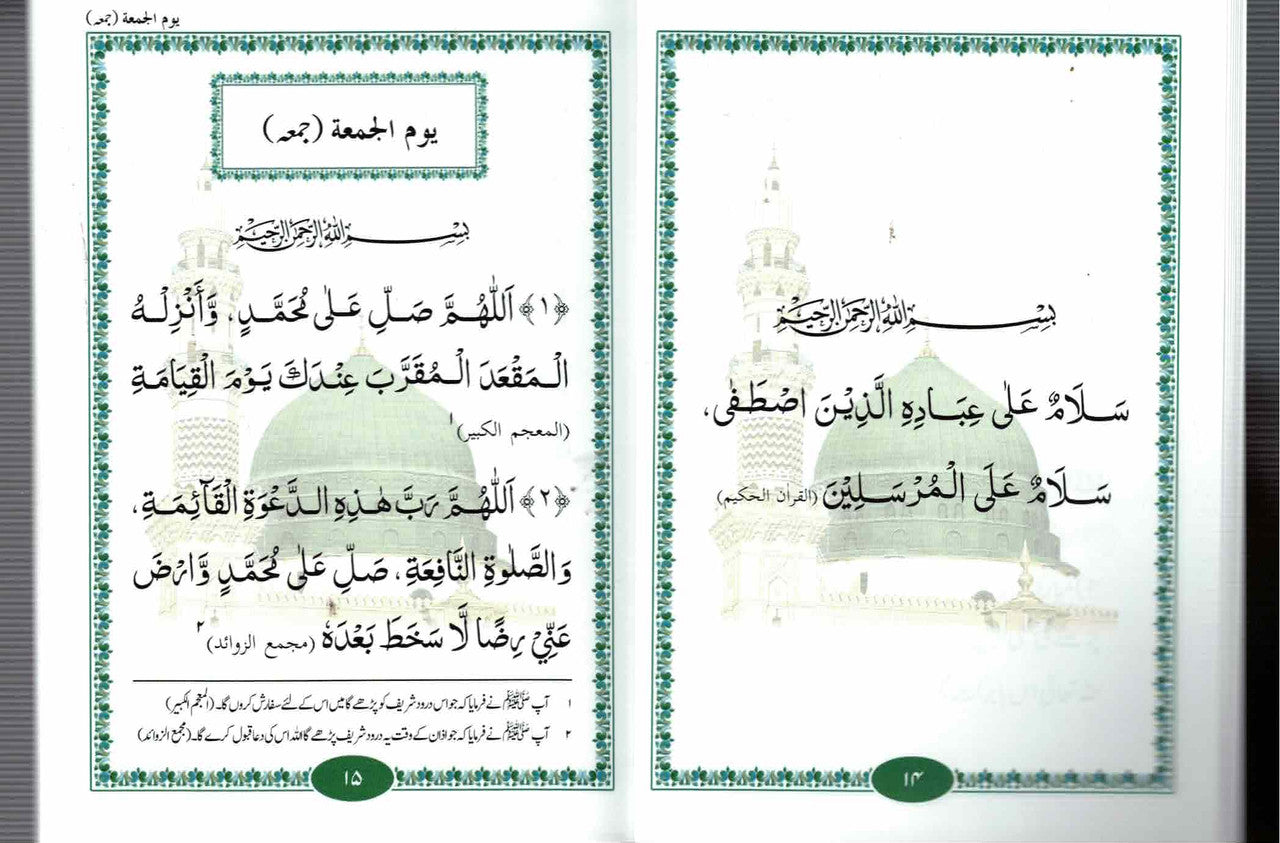 بِسْمِ اللهِ الرَّحْمٰنِ الرَّحِيْمِ
سَلَامٌ عَلٰى عِبَادِهِ الَّذِيْنَ اصْطَفٰى،
سَلَامٌ عَلَى الْمُرْسَلِيْنَ (القرآن الحكيم)
١۴
يوم الجمعة (جمعہ)
يوم الجمعة (جمعہ)
بِسْمِ اللهِ الرَّحْمٰنِ الرَّحِيْمِ
﴿١﴾ اَللّٰهُمَّ صَلِّ عَلٰى مُحَمَّدٍ، وَّأَنْزِلْهُ
الْمَقْعَدَ الْمُقَرَّبَ عِنْدَكَ يَوْمَ الْقِيَامَةِ
(المعجم الكبير)١
﴿٢﴾ اَللّٰهُمَّ رَبَّ هٰذِهِ الدَّعْوَةِ الْقَآئِمَةِ،
وَالصَّلٰوةِ النَّافِعَةِ، صَلِّ عَلٰى مُحَمَّدٍ وَّارْضَ
عَنِّيْ رِضًا لَّا سَخَطَ بَعْدَهٗ (مجمع الزوائد)٢
١ آپ ﷺ نے فرمایا کہ جو اس درود شریف کو پڑھے گا میں اس کے لئے سفارش کروں گا۔ (المعجم الکبیر)
٢ آپ ﷺ نے فرمایا کہ جو اذان کے وقت یہ درود شریف پڑھے گا اللہ اس کی دعا قبول کرے گا۔ (مجمع الزوائد)
١۵